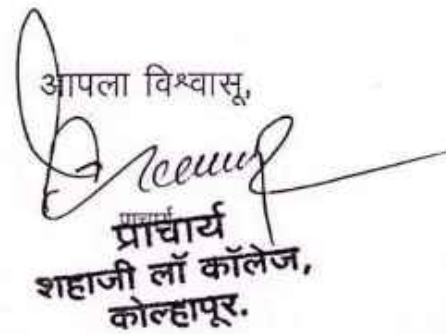 आपला विश्वासू,
प्राचार्य
प्राचार्य
शहाजी लॉ कॉलेज,
कोल्हापूर.